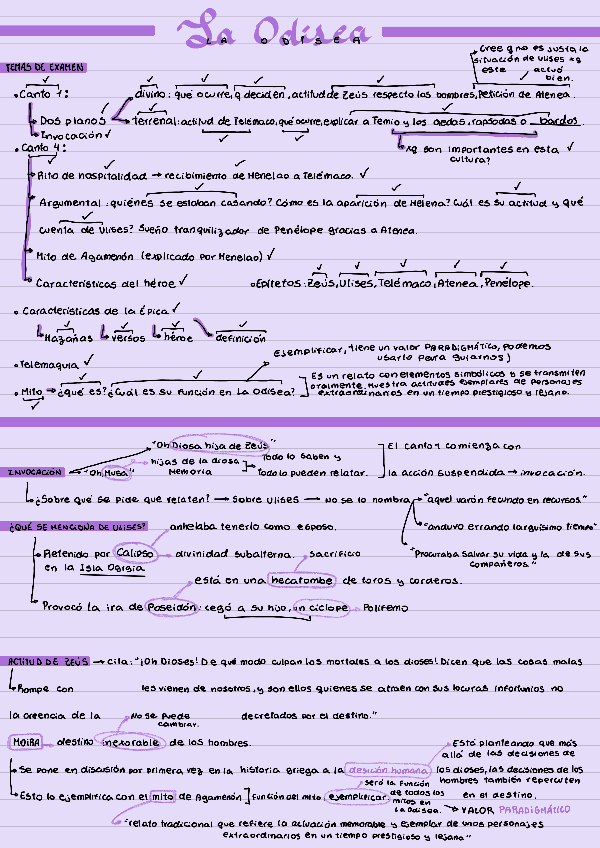 La Odisea
LA ODISEA
Cree q no es justa la
situación de ulises xq
este actuó
bien.
TEMAS DE EXAMEN
• Canto 1:
divino: qué ocurre, q deciden, actitud de Zeús respecto los hombres, Petición de Atenea.
Dos planos
terrenal: actitud de Telémaco, qué ocurre, explicar a Femio y los aedos, rapsodas o bardos
Invocación ✓
xq son importantes en esta ✓
cultura?
• Canto 4:
Rito de hospitalidad → recibimiento de Menelao a Telémaco. ✓
Argumental: quiénes se estaban casando? Cómo es la aparición de Helena? Cuál es su actitud y qué
cuenta de Ulises? Sueño tranquilizador de Penélope gracias a Atenea.
Mito de Agamenón (explicado por Menelao) ✓
Características del héroe ✓
• Epítetos: Zeús, Ulises, Telémaco, Atenea, Penélope.
• Características de la Épica ✓
Hazañas versos héroe definición
Ejemplificar, tiene un valor PARADIGMÁTICO, podemos
usarlo para guiarnos)
• Telemaquia ✓
• Mito → ¿qué es? ¿Cuál es su función en La Odisea?
Es un relato con elementos simbólicos y se transmiten
oralmente, muestra actitudes ejemplares de personajes
extraordinarios en un tiempo prestigioso y lejano.
"Oh Diosa hija de Zeus"
INVOCACIÓN
"Oh, Musa"
hijas de la diosa
Memoria
Todo lo saben y
todo lo pueden relatar.
El canto 1 comienza con
la acción suspendida → invocación.
¿Sobre qué se pide que relaten? → Sobre Ulises → No se lo nombra → "aquel varón fecundo en recursos."
"anduvo errando larguísimo tiempo"
"Procuraba salvar su vida y la de sus
compañeros."
¿QUÉ SE MENCIONA DE ULISES?
anhelaba tenerlo como esposo.
Retenido por Calipso → divinidad subalterna.
en la Isla Ogigia
sacrificio
está en una hecatombe de toros y corderos.
Provocó la ira de Poseidón: cegó a su hijo, un cíclope → Polifemo
ACTITUD DE ZEÚS → Cita: "¡Oh Dioses! De qué modo culpan los mortales a los dioses! Dicen que las cosas malas
Rompe con les vienen de nosotros, y son ellos quienes se atraen con sus locuras infortunios no
la creencia de la decretados por el destino."
No se puede
cambiar.
MOIRA → destino inexorable de los hombres.
Está planteando que más
allá de las decisiones de
Se pone en discusión por primera vez en la historia griega a la desición humana
los dioses, las decisiones de los
hombres también repercuten
en el destino.
Esto lo ejemplifica con el mito de Agamenón
Función del mito: ejemplificar
será la función
de todos los
mitos en
La Odisea.
→ VALOR PARADIGMÁTICO
"relato tradicional que refiere la actuación memorable y ejemplar de unos personajes
extraordinarios en un tiempo prestigioso y lejano"